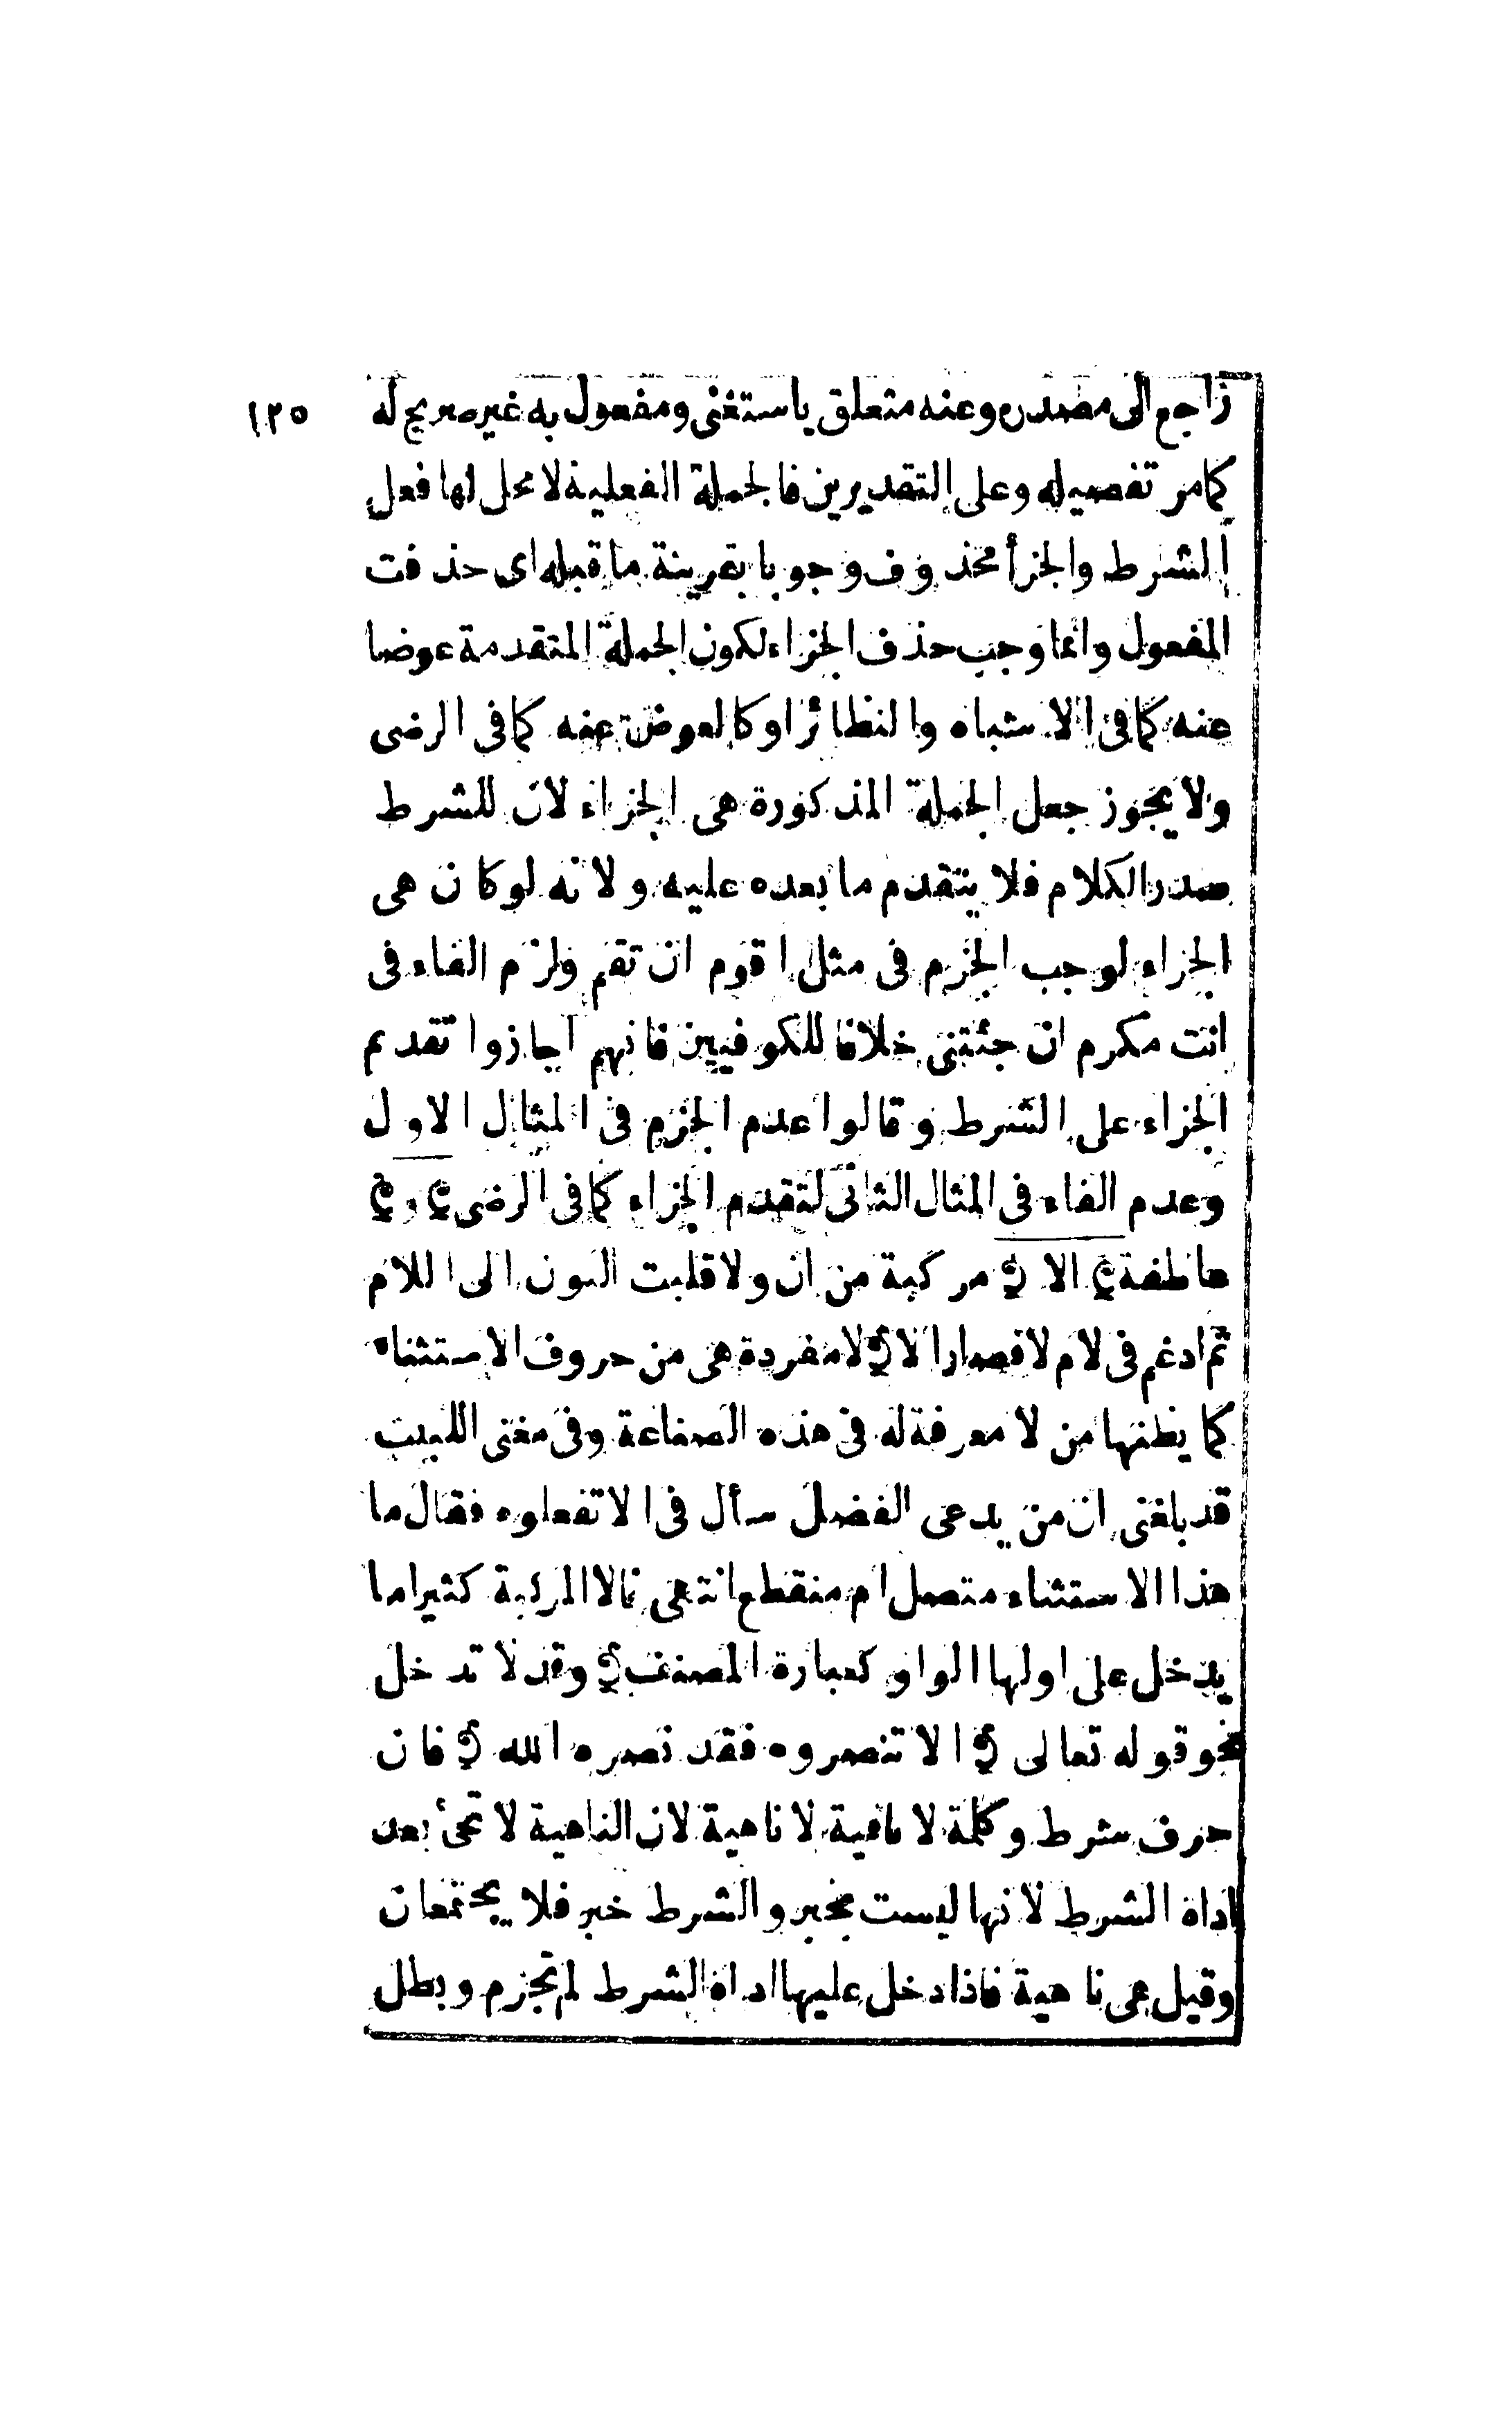 راجع الى مصدره وعنه متعلق باستغنى ومفعول به غير صريح له ١٢٥
كما مر تفصيله وعلى التقديرين فالجملة الفعلية لا محل لها فعل
الشرط والجزأ محذوف وجوبا بقرينة ما قبله اى حذفت
المفعول وانما وجب حذف الجزاء لكون الجملة المتقدمة عوضا
عنه كما فى الاشباه والنظائر او كالعوض عنه كما فى الرضى
ولا يجوز جعل الجملة المذكورة هى الجزاء لان للشرط
صدر الكلام فلا يتقدم ما بعده عليه ولانه لو كان هى
الجزاء لوجب الجزم فى مثل اقوم ان تقم ولزم الفاء فى
انت مكرم ان جئتنى خلافا للكوفيين فانهم اجازوا تقديم
الجزاء على الشرط وقالوا عدم الجزم فى المثال الاول
وعدم الفاء فى المثال الثانى لتقدم الجزاء كما فى الرضى ﴿ و ﴾
عاطفة ﴿ الا ﴾ مركبة من ان ولا قلبت النون الى اللام
ثم ادغم فى لام لا فصار الا ﴿ لا مفردة هى من حروف الاستثناء
كما يظنها من لا معرفة له فى هذه الصناعة وفى مغنى اللبيب
قد بلغنى ان من يدعى الفضل سأل فى الا تفعلوه فقال ما
هذا الاستثناء متصل ام منقطع انتهى فالا المركبة كثيرا ما
يدخل على اولها الواو كعبارة المصنف ﴿ وقد لا تدخل
نحو قوله تعالى ﴿ الا تنصروه فقد نصره الله ﴾ فان
حرف شرط وكلمة لا نافية لا ناهية لان الناهية لا تجئ بعد
اداة الشرط لانها ليست بخبر والشرط خبر فلا يجتمعان
وقيل هى ناهية فاذا دخل عليها اداة الشرط لم تجزم وبطل